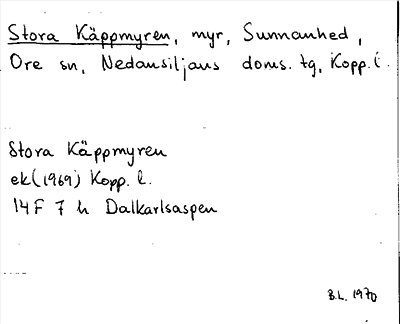 Stora Käppmyren, myr, Sunnanhed,
Ore sn, Nedansiljans doms. tg, Kopp. l.
Stora Käppmyren
ek (1969) Kopp. l.
14F 7 h Dalkarlsaspen
B.L. 1970